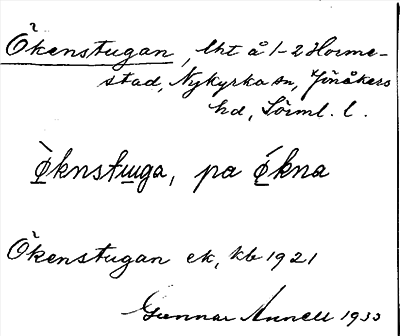 Ökenstugan, lht å 1-2 Horme-
stad, Nykyrka sn, Jönåkers
hd, Sörml. l.
Ø̀knstuga, pa Ǿkna
Ökenstugan ek, kb 1921
Gunnar Annell 1933